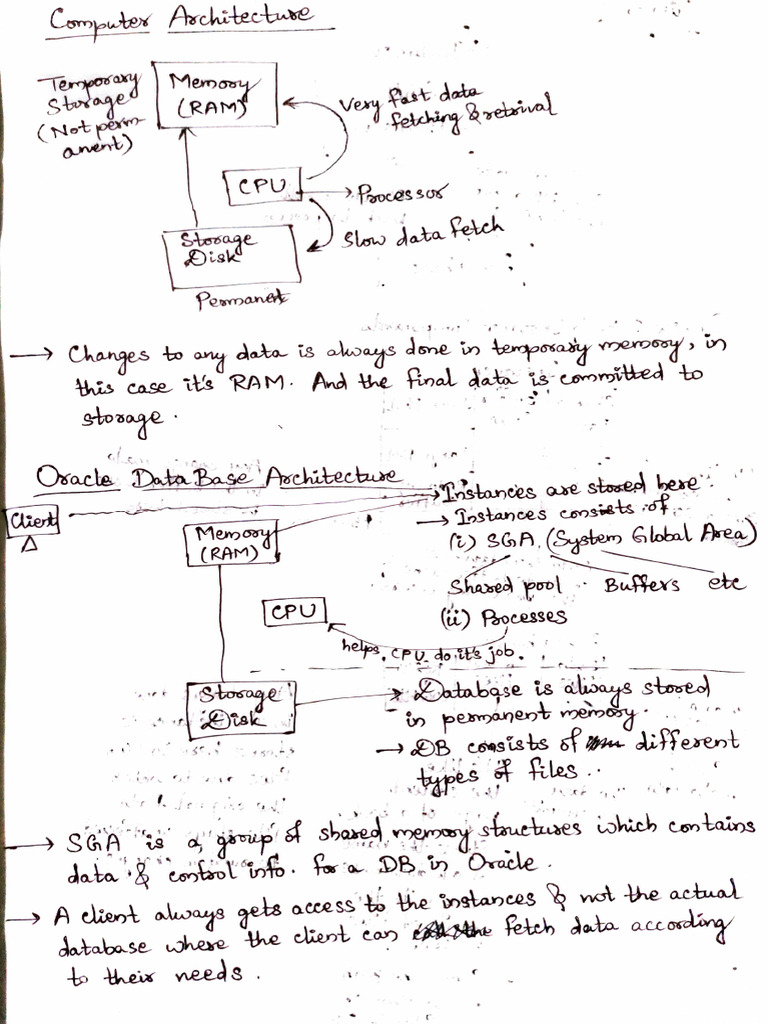 Computer Architecture
Temporary
Storage
(Not perm-
anent)
Memory
(RAM)
Very fast data
fetching & retrival
CPU
Processor
Storage
Disk
Slow data fetch
Permanent
→ Changes to any data is always done in temporary memory, in
this case it's RAM. And the final data is committed to
storage.
Oracle DataBase Architecture
Client
Memory
(RAM)
→ Instances are stored here.
→ Instances consists of
(i) SGA (System Global Area)
Shared pool Buffers etc
(ii) Processes
CPU
helps CPU do it's job.
Storage
Disk
→ Database is always stored
in permanent memory.
→ DB consists of different
types of files..
→ SGA is a group of shared memory structures which contains
data & control info. for a DB in Oracle.
→ A client always gets access to the instances & not the actual
database where the client can fetch data according
to their needs.